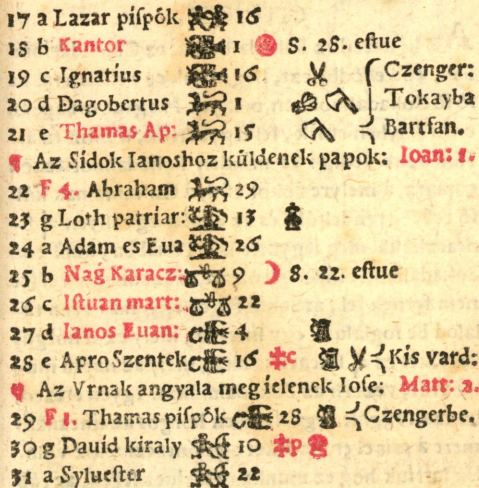 17 a Lazar pißpôk 16
18 b Kantor 1 8. 28. estue
19 c Ignatius 16 Czenger:
20 d Dagobertus 1 Tokayba
21 e Thamas Ap: 15 Bartfan.
¶ Az Sidok Ianoshoz kûldenek papok: Ioan: 1.
22 F 4. Abraham 29
23 g Loth patriar: 13
24 a Adam es Eua 26
25 b Nag Karacz: 9 8. 22. estue
26 c Istuan mart: 22
27 d Ianos Euan: 4
28 e Apro Szentek 16 ‡c Kis vard:
¶ Az Vrnak angyala meg ielenek Iose: Matt: 2.
29 F 1. Thamas pißpôk 28 Czengerbe.
30 g Dauid kiraly 10 ‡p
31 a Syluester 22